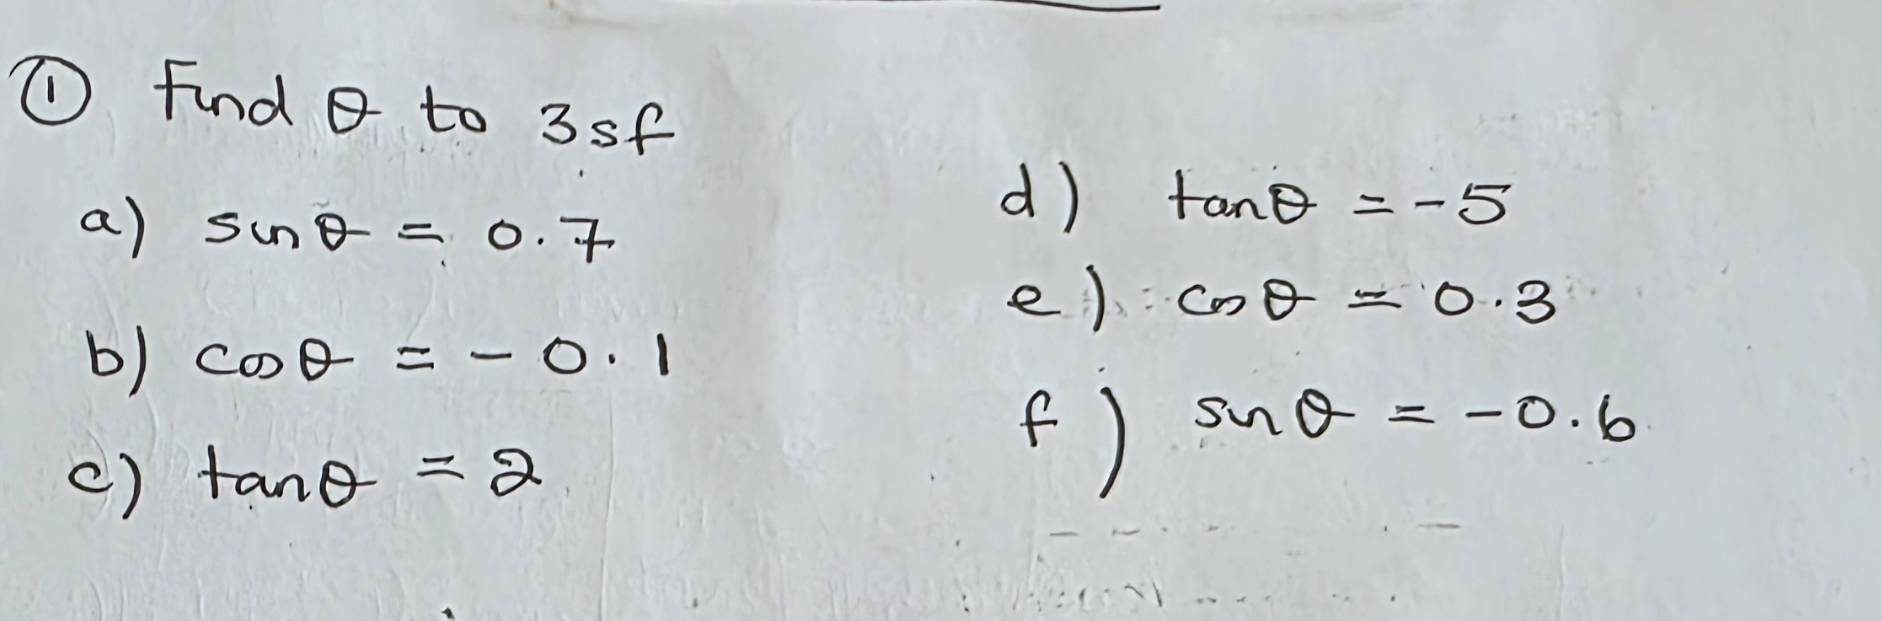 ① Find θ to 3sf
a) sinθ = 0.7
b) cosθ = -0.1
c) tanθ = 2
d) tanθ = -5
e) cosθ = 0.3
f) sinθ = -0.6